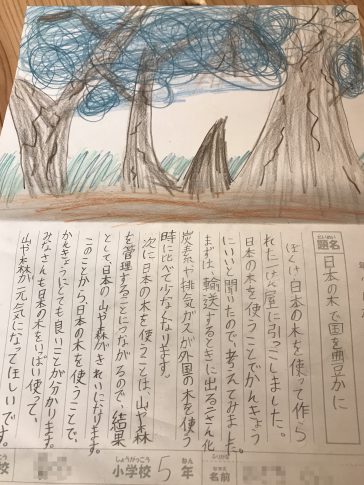 だいめい
題名
日本の木で国を豊かに
ぼくは日本の木を使って作ら
れた一けん屋に引っこしました。
日本の木を使うことでかんきょう
にいいと聞いたので、考えてみました。
まずは、輸送するときに出る二さん化
炭素や排気ガスが外国の木を使う
時に比べて少なくなります。
次に日本の木を使うことは、山や森
を管理することにつながるので、結果
として、日本の山や森がきれいになります。
このことから、日本の木を使うことで、
かんきょうにとても良いことが分かります。
みなさんも日本の木をいっぱい使って、
山や森が元気になってほしいです。
しょうがっこう ねん なまえ
小学校 5 年 名前